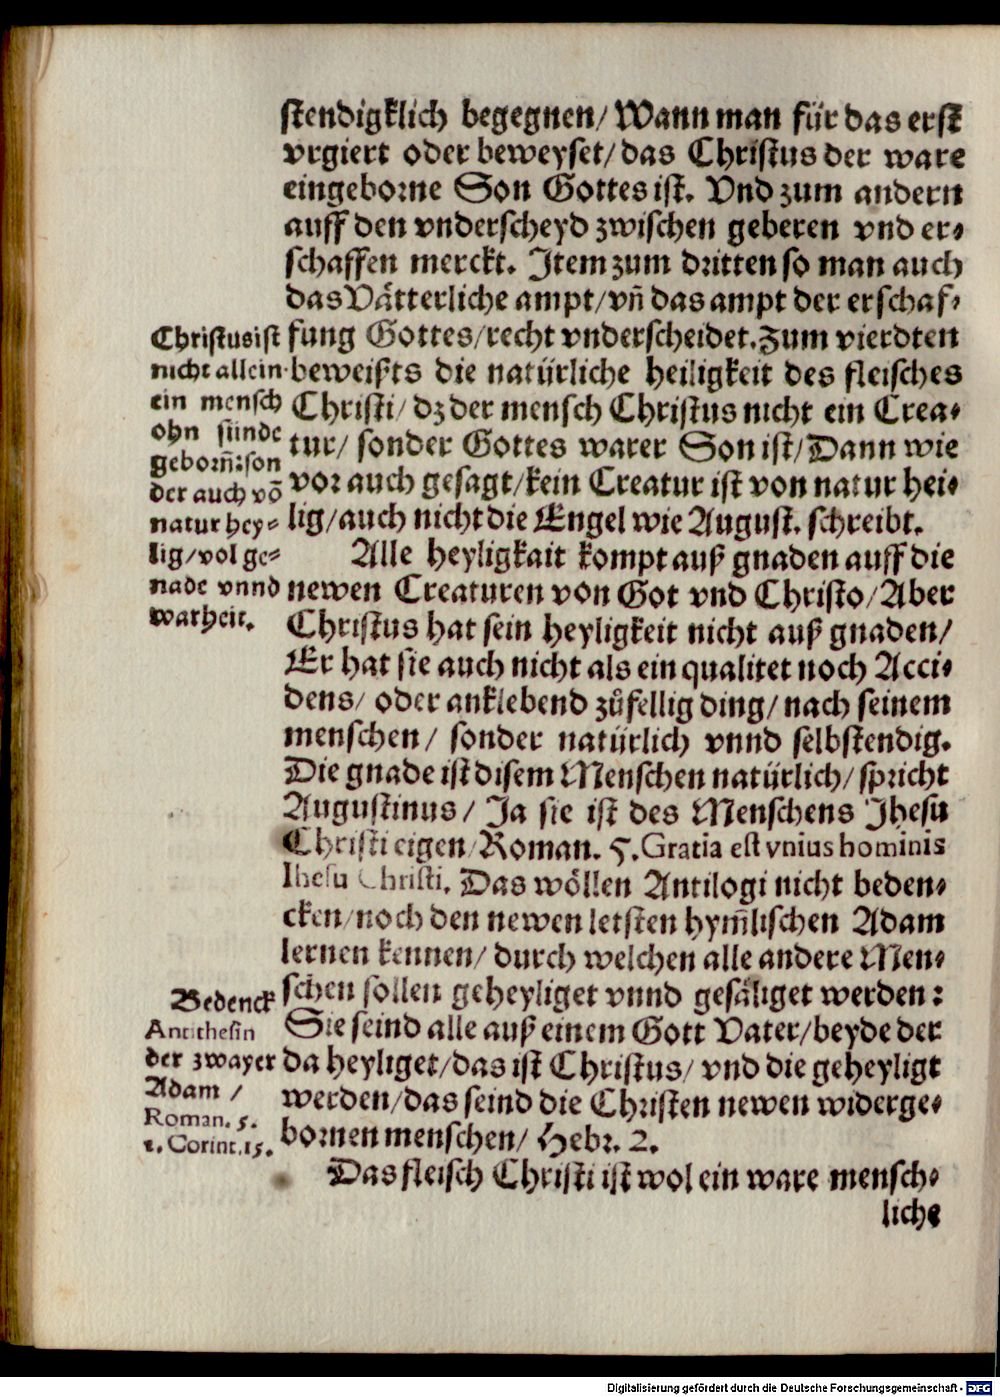 stendigklich begegnen/ Wann man für das erst
vrgiert oder beweyset/ das Christus der ware
eingeborne Son Gottes ist. Vnd zum andern
auff den vnderscheyd zwischen geberen vnd er⸗
schaffen merckt. Item zum dritten so man auch
das Vätterliche ampt/ vñ das ampt der erschaf⸗
fung Gottes/ recht vnderscheidet. Zum vierdten
beweißts die natürliche heiligkeit des fleisches
Christi/ dz der mensch Christus nicht ein Crea⸗
tur/ sonder Gottes warer Son ist/ Dann wie
vor auch gesagt/ kein Creatur ist von natur hei⸗
lig/ auch nicht die Engel wie August. schreibt.
Christus ist
nicht allein
ein mensch
ohn sünde
geborn̄: son
der auch võ
natur hey⸗
lig/ vol ge⸗
nade vnnd
warheit.
Alle heyligkait kompt auß gnaden auff die
newen Creaturen von Got vnd Christo/ Aber
Christus hat sein heyligkeit nicht auß gnaden/
Er hat sie auch nicht als ein qualitet noch Acci⸗
dens/ oder anklebend zůfellig ding/ nach seinem
menschen/ sonder natürlich vnnd selbstendig.
Die gnade ist disem Menschen natürlich/ spricht
Augustinus/ Ja sie ist des Menschens Jhesu
Christi eigen/ Roman. 5. Gratia est vnius hominis
Ihesu Christi. Das wöllen Antilogi nicht beden⸗
cken/ noch den newen letsten hym̄lischen Adam
lernen kennen/ durch welchen alle andere Men⸗
schen sollen geheyliget vnnd gesäliget werden:
Sie seind alle auß einem Gott Vater/ beyde der
da heyliget/ das ist Christus/ vnd die geheyligt
werden/ das seind die Christen newen widerge⸗
bornen menschen/ Hebr. 2.
Bedenck
Antithesin
der zwayer
Adam /
Roman. 5.
1. Corint. 15.
Das fleisch Christi ist wol ein ware mensch⸗
liche
Digitalisierung gefördert durch die Deutsche Forschungsgemeinschaft - DFG